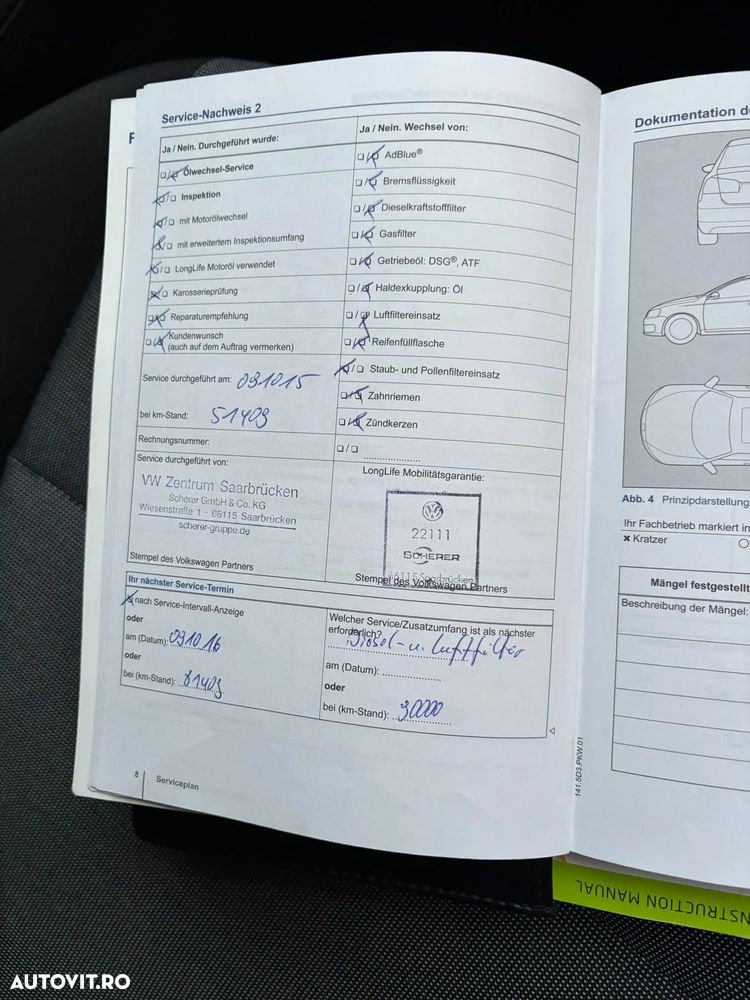 Service-Nachweis 2
Ja / Nein. Durchgeführt wurde:
Ölwechsel-Service
Inspektion
mit Motorölwechsel
mit erweitertem Inspektionsumfang
LongLife Motoröl verwendet
Karosserieprüfung
Reparaturempfehlung
Kundenwunsch
(auch auf dem Auftrag vermerken)
Service durchgeführt am: 091015
bei km-Stand: 51409
Rechnungsnummer:
Service durchgeführt von:
VW Zentrum Saarbrücken
Scherer GmbH & Co. KG
Wiesenstraße 1 · 66115 Saarbrücken
scherer-gruppe.de
Stempel des Volkswagen Partners
Ja / Nein. Wechsel von:
AdBlue®
Bremsflüssigkeit
Dieselkraftstofffilter
Gasfilter
Getriebeöl: DSG®, ATF
Haldexkupplung: Öl
Luftfiltereinsatz
Reifenfüllflasche
Staub- und Pollenfiltereinsatz
Zahnriemen
Zündkerzen
LongLife Mobilitätsgarantie:
22111
SCHERER
66115 Saarbrücken
Stempel des Volkswagen Partners
Ihr nächster Service-Termin
nach Service-Intervall-Anzeige
oder
am (Datum): 091016
oder
bei (km-Stand): 81409
Welcher Service/Zusatzumfang ist als nächster
erforderlich?
Diesel- u. Luftfilter
am (Datum):
oder
bei (km-Stand): 90000
8 Serviceplan
141.5D3.PKW.01
Dokumentation
Abb. 4 Prinzipdarstellung
Ihr Fachbetrieb markiert in
✖ Kratzer
Mängel festgestellt
Beschreibung der Mängel:
INSTRUCTION MANUAL
AUTOVIT.RO